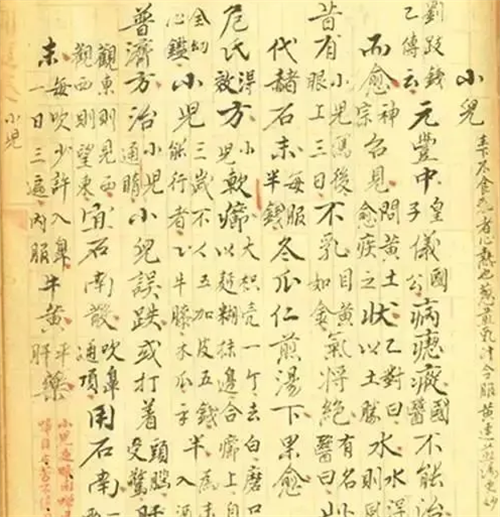 小兒 不食乳者心熱也葱煎乳汁令服黃連
劉跂錢乙傳云元豐中皇子儀國公病瘛瘲國醫不能治
而愈神宗召見問黃土愈疾之狀乙對曰以土勝水水得則風
昔有小兒瀉後眼上三日不乳目黃如金氣將絕醫曰有名
代赭石末每服半錢冬瓜仁煎湯下果愈
危氏得效方小兒軟癤大枳壳一个去白磨口以麪糊抹邊合癤上自
全幼心鑑小兒三歲不能行者五加皮五錢牛膝木瓜二錢半為末入酒
普濟方治小兒通睛小兒誤跌或打着頭腦受驚肝
觀東則見西觀西則望東宜石南散吹鼻通頂用石南一
末每吹少許入鼻一日三遍內服牛黃平肝藥
小兒